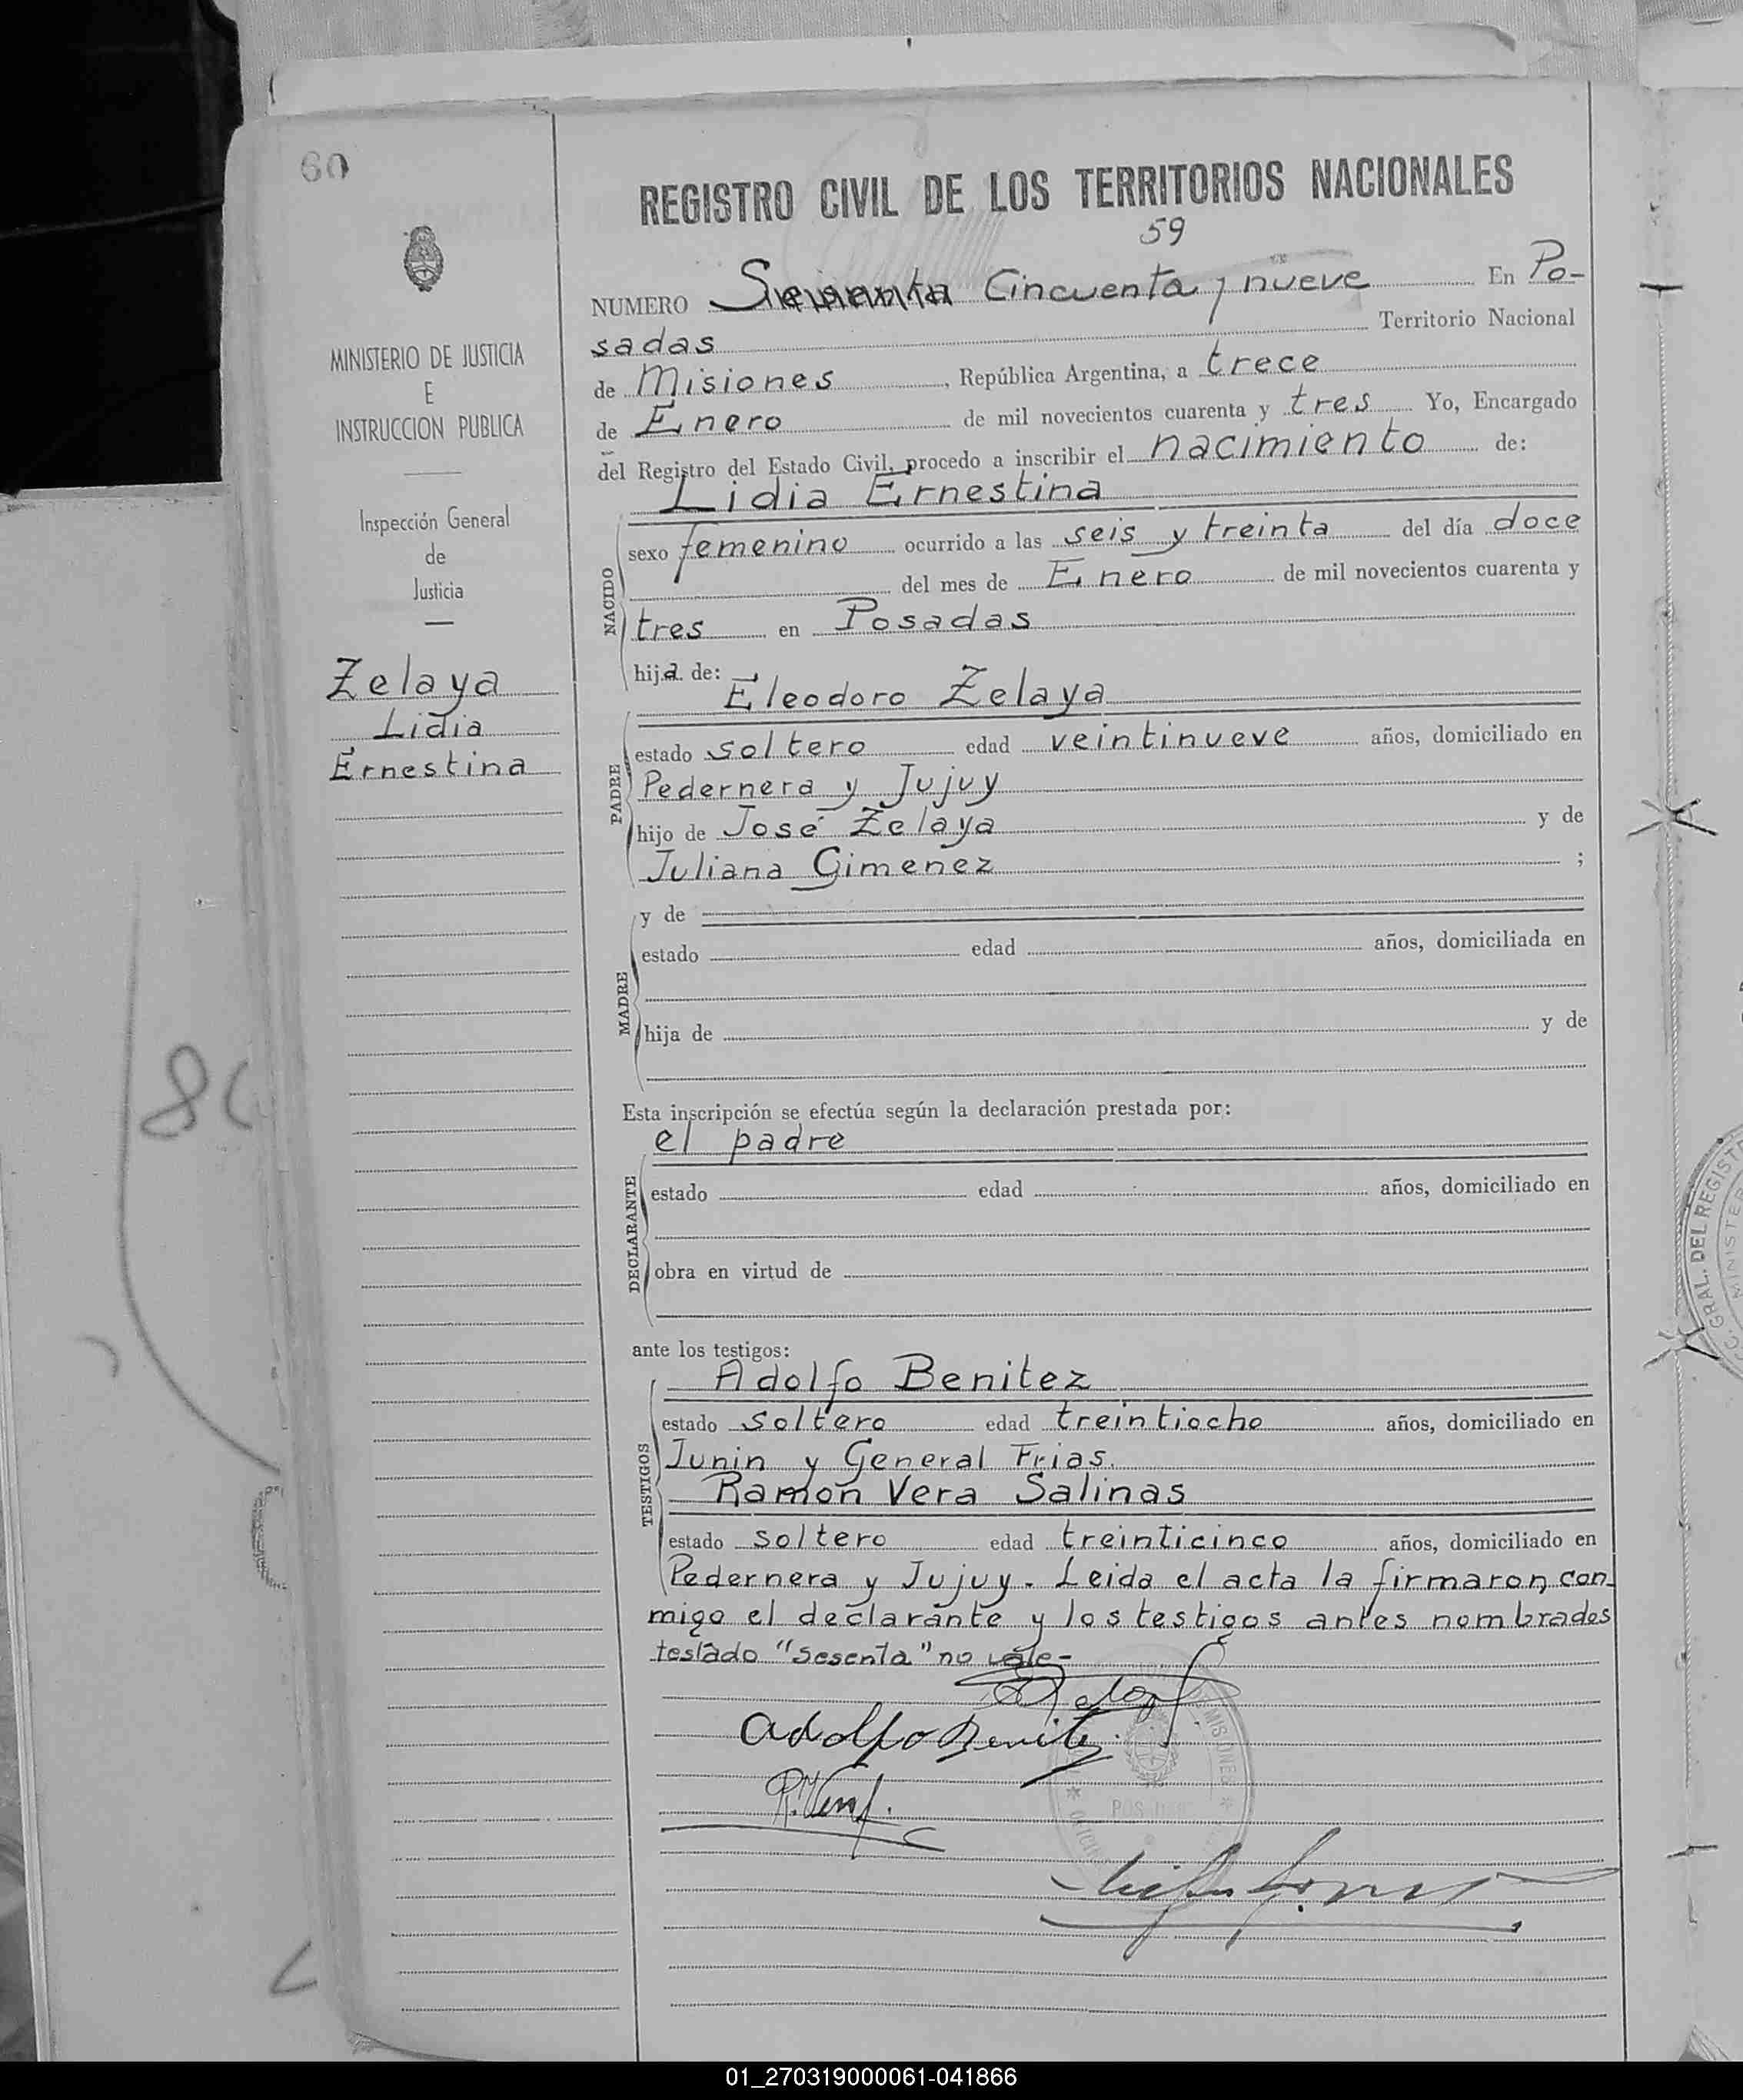 60
REGISTRO CIVIL DE LOS TERRITORIOS NACIONALES
59
NUMERO Sesenta Cincuenta y nueve En Po-
sadas Territorio Nacional
de Misiones, República Argentina, a trece
de Enero de mil novecientos cuarenta y tres Yo, Encargado
del Registro del Estado Civil, procedo a inscribir el nacimiento de:
Lidia Ernestina
sexo femenino ocurrido a las seis y treinta del día doce
del mes de Enero de mil novecientos cuarenta y
tres en Posadas
hija de:
NACIDO
Eleodoro Zelaya
estado soltero edad veintinueve años, domiciliado en
Pedernera y Jujuy
hijo de José Zelaya y de
Juliana Gimenez ;
PADRE
y de
estado edad años, domiciliada en
hija de y de
MADRE
Esta inscripción se efectúa según la declaración prestada por:
el padre
estado edad años, domiciliado en
obra en virtud de
DECLARANTE
ante los testigos:
Adolfo Benitez
estado soltero edad treintiocho años, domiciliado en
Junin y General Frias.
Ramón Vera Salinas
estado soltero edad treinticinco años, domiciliado en
TESTIGOS
Pedernera y Jujuy. Leida el acta la firmaron con-
migo el declarante y los testigos antes nombrados
testado "sesenta" no vale-
Adolfo Benitez
MISIONES
MINISTERIO DE JUSTICIA
E
INSTRUCCION PUBLICA
Inspección General
de
Justicia
Zelaya
Lidia
Ernestina
GRAL. DEL REGIST
01_270319000061-041866